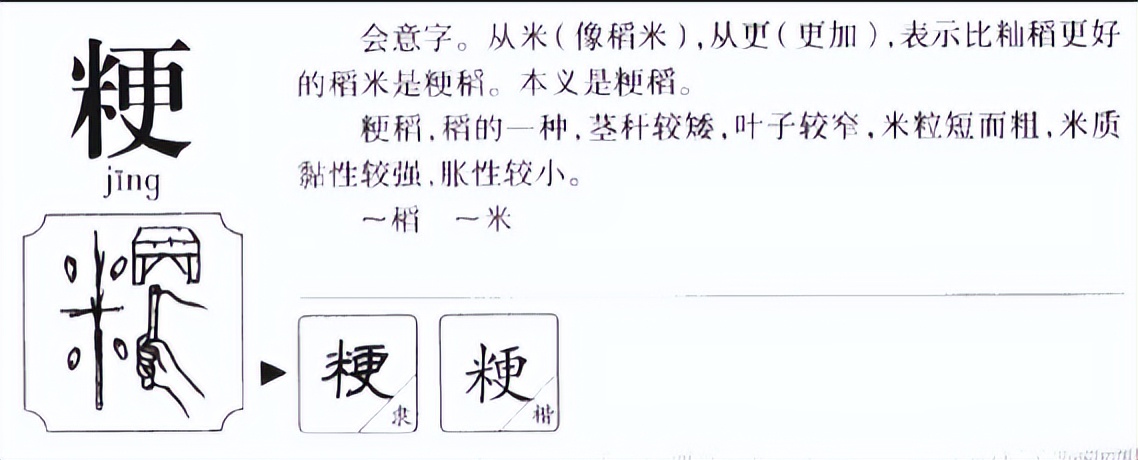 粳
jīng
会意字。从米(像稻米),从更(更加),表示比籼稻更好
的稻米是粳稻。本义是粳稻。
粳稻,稻的一种,茎秆较矮,叶子较窄,米粒短而粗,米质
黏性较强,胀性较小。
～稻 ～米
粳 隶
粳 楷